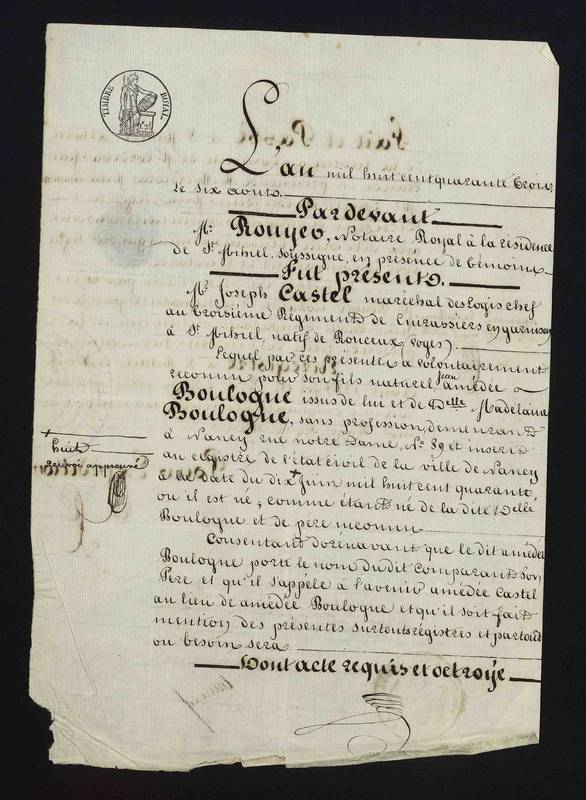 TIMBRE ROYAL
L'an mil huit cent quarante trois
le six aout.
Pardevant
Me Rouyer, Notaire Royal à la résidence
de St. Mihiel, soussigné, en présence de témoins
Fut présent.
Mr. Joseph Castel maréchal des logis chef
au troisième Régiment de Cuirassiers en garnison
à St. Mihiel, natif de Ronceux (voges).
Lequel par ces présentes a volontairement
reconnu pour son fils naturel jean amédée
Boulogne issus de lui et de Delle Madelaine
Boulogne, sans profession, demeurant
à Nancy, rue notre Dame, No. 89 et inscrit
au registre de l'état civil de la ville de Nancy
à la date du dix + Juin mil huit cent quarante,
ou il est né, comme étant né de la dite Delle
Boulogne et de père inconnu
Consentant dorénavant que le dit amédée
Boulogne porte le nom du dit Comparant son
Père et qu'il s'appèle à l'avenir amédée Castel
au lieu de amédée Boulogne et qu'il soit fait
mention des présentes sur tous régistres et partout
ou besoin sera
Dont acte requis et octroyé
+ huit
renvoi approuvé